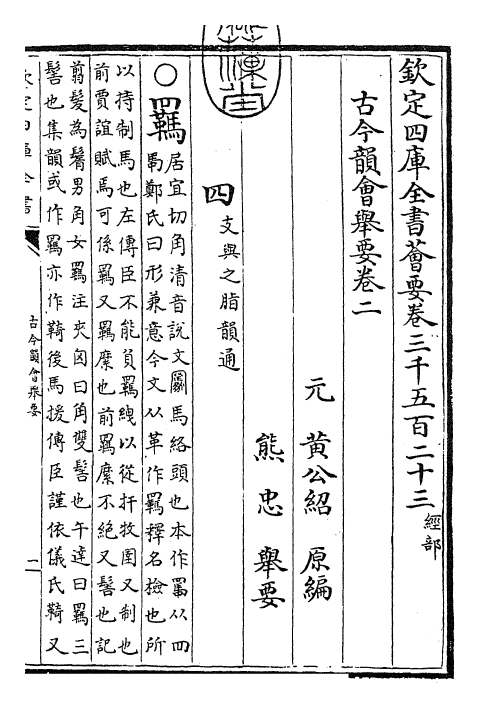 欽定四庫全書薈要卷三千五百二十三 經部
古今韻會舉要卷二
元 黃公紹 原編
熊忠 舉要
四 支與之脂韻通
○羈 居宜切角清音說文馬絡頭也本作从四
馽鄭氏曰形兼意今文从革作羈釋名檢也所
以持制馬也左傳臣不能負羈絏以從扞牧圉又制也
前賈誼賦馬可係羈又羈縻也前羈縻不絕又髻也記
翦髮為鬌男角女羈注夾囟曰角雙髻也午達曰羈三
髻也集韻或作羇亦作䩭後馬援傳臣謹依儀氏䩭又
欽定四庫全書
古今韻會舉要